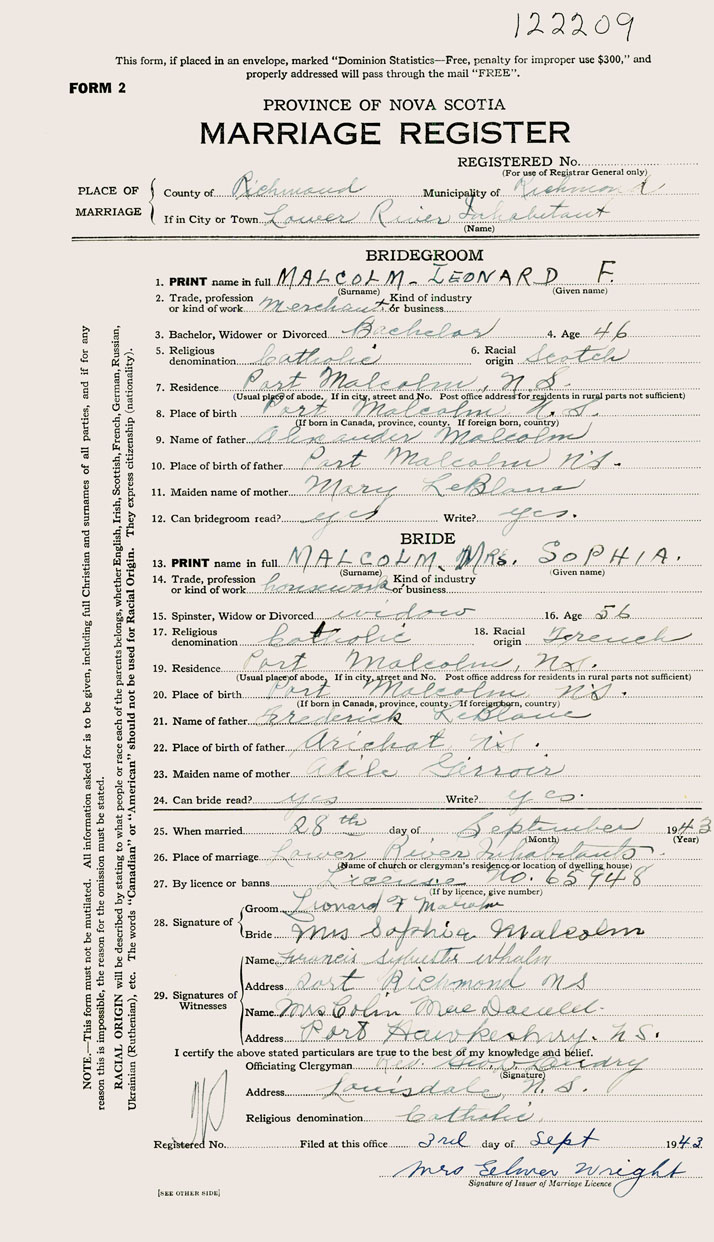 122209
This form, if placed in an envelope, marked “Dominion Statistics—Free, penalty for improper use $300,” and
properly addressed will pass through the mail “FREE”.
FORM 2
PROVINCE OF NOVA SCOTIA
MARRIAGE REGISTER
REGISTERED No.
(For use of Registrar General only)
PLACE OF MARRIAGE
County of Richmond Municipality of Richmond
If in City or Town Lower River Inhabitant
(Name)
BRIDEGROOM
1. PRINT name in full MALCOLM - LEONARD F.
(Surname) (Given name)
2. Trade, profession or kind of work Merchant Kind of industry or business
3. Bachelor, Widower or Divorced Bachelor 4. Age 46
5. Religious denomination Catholic 6. Racial origin Scotch
7. Residence Port Malcolm, N.S.
(Usual place of abode. If in city, street and No. Post office address for residents in rural parts not sufficient)
8. Place of birth Port Malcolm N.S.
(If born in Canada, province, county. If foreign born, country)
9. Name of father Alexander Malcolm
10. Place of birth of father Port Malcolm NS.
11. Maiden name of mother Mary LeBlanc
12. Can bridegroom read? yes Write? yes.
BRIDE
13. PRINT name in full MALCOLM, MRS. SOPHIA.
(Surname) (Given name)
14. Trade, profession or kind of work housework Kind of industry or business
15. Spinster, Widow or Divorced widow 16. Age 56
17. Religious denomination Catholic 18. Racial origin French
19. Residence Port Malcolm, N.S.
(Usual place of abode. If in city, street and No. Post office address for residents in rural parts not sufficient)
20. Place of birth Port Malcolm NS.
(If born in Canada, province, county. If foreign born, country)
21. Name of father Frederick LeBlanc
22. Place of birth of father Arichat, N.S.
23. Maiden name of mother Adile Gerroir
24. Can bride read? yes Write? yes.
25. When married 28th day of September 1943
(Month) (Year)
26. Place of marriage Lower River Inhabitants
(Name of church or clergyman's residence or location of dwelling house)
27. By licence or banns License No. 65948
(If by licence, give number)
28. Signature of
Groom Leonard F Malcolm
Bride Mrs Sophia Malcolm
29. Signatures of Witnesses
Name Francis Sylvester
Address Port Richmond NS
Name Mrs Colin Mac
Address Port Hawkesbury. N.S.
I certify the above stated particulars are true to the best of my knowledge and belief.
Officiating Clergyman Rev. Landry
(Signature)
Address Louisdale, N.S.
Religious denomination Catholic
Registered No. Filed at this office 3rd day of Sept 1943
Mrs Elmer Wright
Signature of Issuer of Marriage Licence
[SEE OTHER SIDE]
NOTE.—This form must not be mutilated. All information asked for is to be given, including full Christian and surnames of all parties, and if for any
reason this is impossible, the reason for the omission must be stated.
RACIAL ORIGIN will be described by stating to what people or race each of the parents belongs, whether English, Irish, Scottish, French, German, Russian,
Ukrainian (Ruthenian), etc. The words “Canadian” or “American” should not be used for Racial Origin. They express citizenship (nationality).